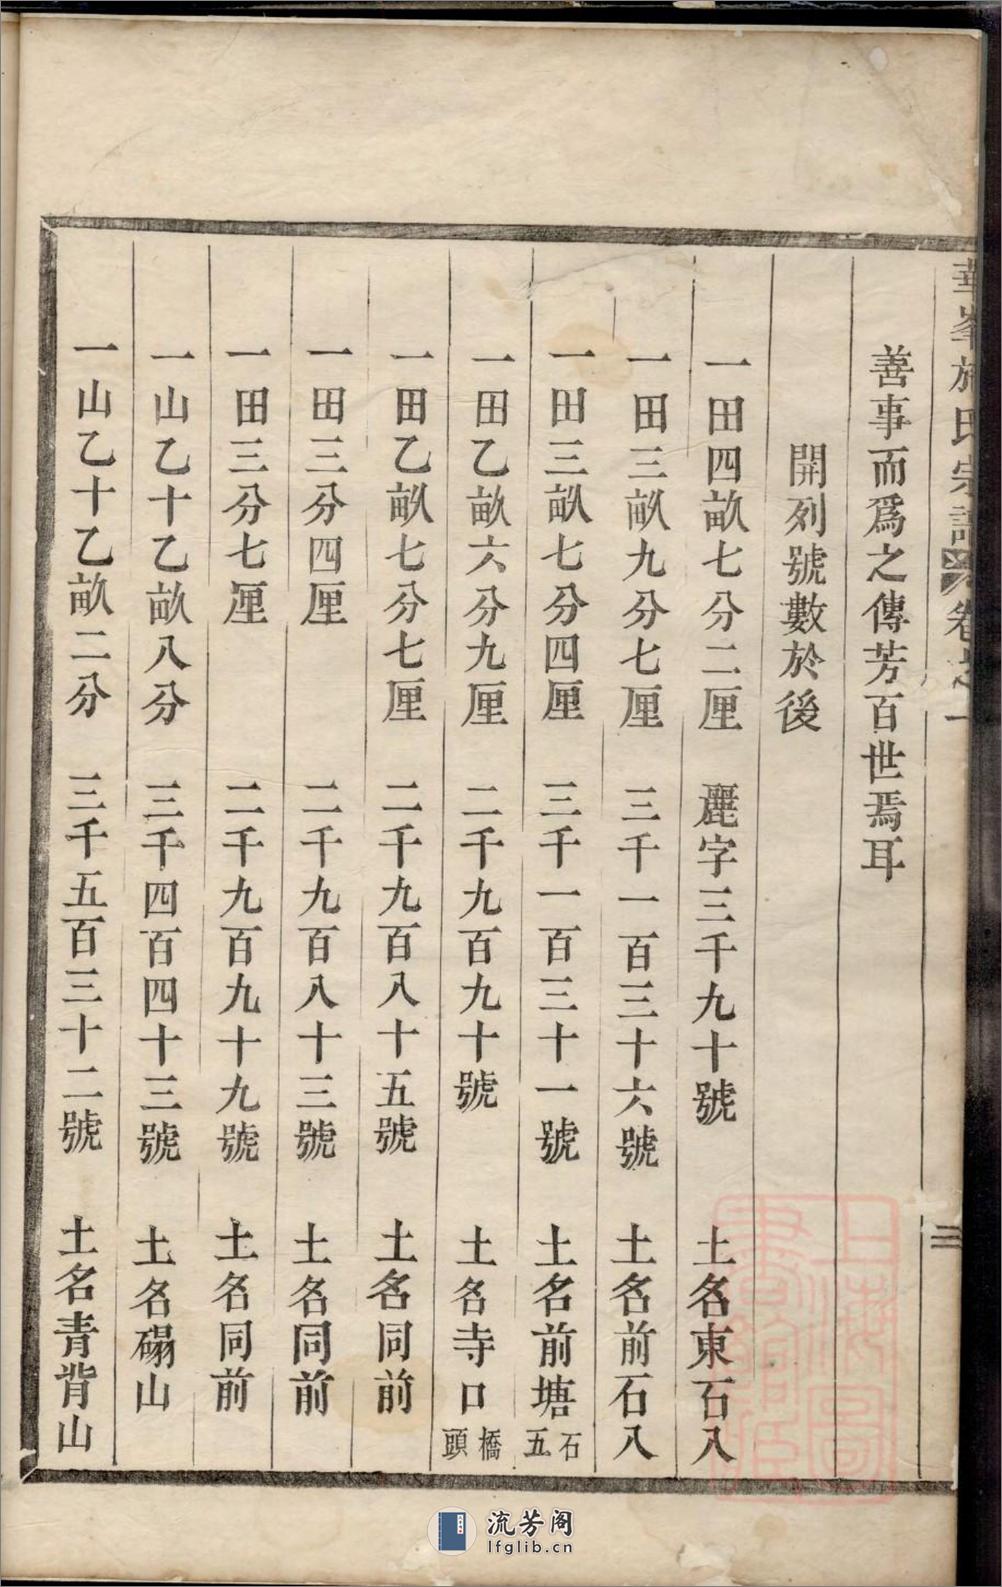 華峯施氏宗譜 卷之一 三
善事而爲之傳芳百世焉耳
開列號數於後
一田四畝七分二厘 麗字三千九十號 土名東石八
一田三畝九分七厘 三千一百三十六號 土名前石八
一田三畝七分四厘 三千一百三十一號 土名前塘石五
一田乙畝六分九厘 二千九百九十號 土名寺口橋頭
一田乙畝七分七厘 二千九百八十五號 土名同前
一田三分四厘 二千九百八十三號 土名同前
一田三分七厘 二千九百九十九號 土名同前
一山乙十乙畝八分 三千四百四十三號 土名磖山
一山乙十乙畝二分 三千五百三十二號 土名青背山
上海圖書館藏
流芳阁
lfglib.cn